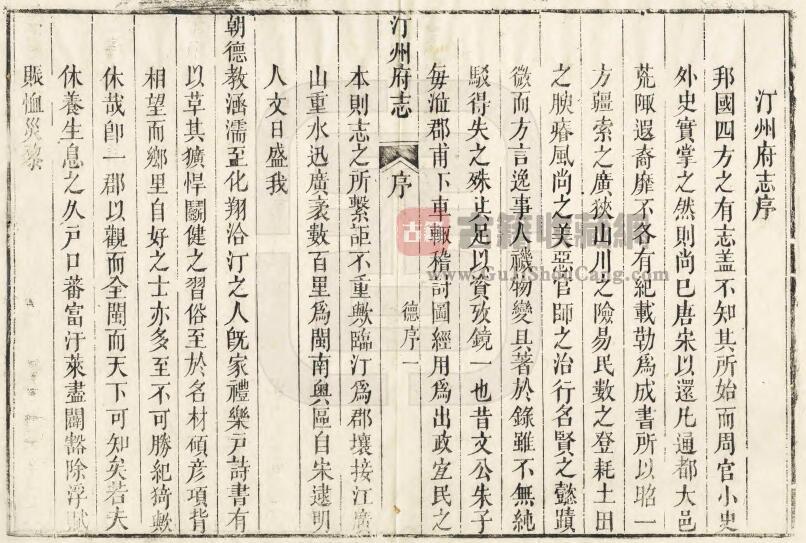 汀州府志序
邦國四方之有志盖不知其所始而周官小史
外史實掌之然則尚巳唐宋以還凡通都大邑
荒陬遐裔靡不各有紀載勒爲成書所以昭一
方疆索之廣狹山川之險易民數之登耗土田
之腴瘠風尚之美惡官師之治行名賢之懿蹟
微而方言逸事人禨物變具著於錄雖不無純
駁得失之殊止足以資攷鏡一也昔文公朱子
每涖郡甫下車輙稽討圖經用爲出政宜民之
汀州府志
序
德序一
本則志之所繫詎不重歟臨汀爲郡壤接江廣
山重水迅廣袤數百里爲閩南輿區自宋逮明
人文日盛我
朝德教涵濡至化翔洽汀之人旣家禮樂戸詩書有
以草其獷悍鬬健之習俗至於名材碩彦項背
相望而鄉里自好之士亦多至不可勝紀猗歟
休哉卽一郡以觀而全閩而天下可知矣若夫
休養生息之久戸口蕃富汙萊盡闢豁除浮賦
賑恤災黎
古籍收藏網
www.GuJiShouCang.com